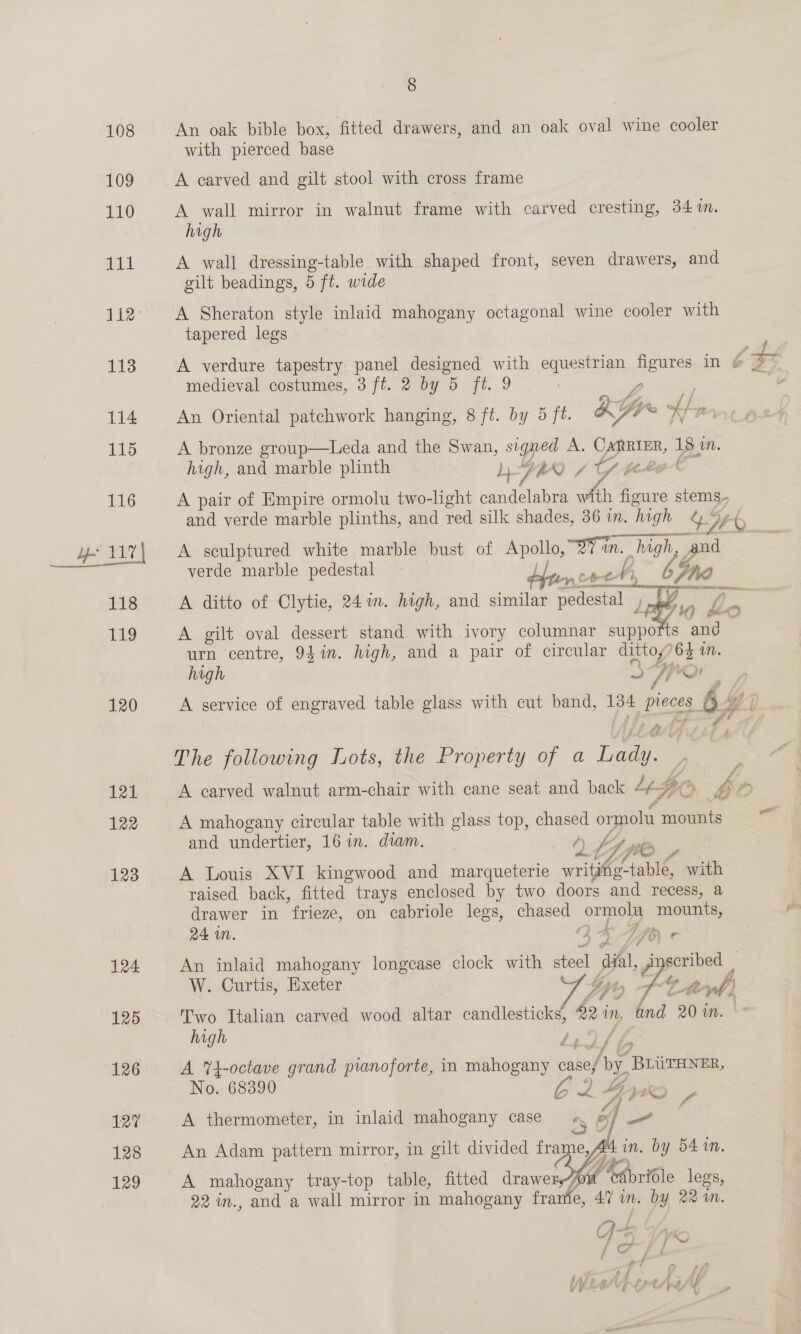 8
108 An oak bible box, fitted drawers, and an oak oval wine cooler
with pierced base
109 A carved and gilt stool with cross frame
110 A wall mirror in walnut frame with carved cresting, 34 in.
high
111 A wall dressing-table with shaped front, seven drawers, and
gilt beadings, 5 ft. wide
112 A Sheraton style inlaid mahogany octagonal wine cooler with
tapered legs
113 A verdure tapestry panel designed with equestrian figures in
medieval costumes, 3 ft. 2 by 5 ft. 9
114 An Oriental patchwork hanging, 8 ft. by 5 ft.
115 A bronze group—Leda and the Swan, signed A. CARRIER, 18 in.
high, and marble plinth
116 A pair of Empire ormolu two-light candelabra with figure stems,
and verde marble plinths, and red silk shades, 36 in. high
117 A sculptured white marble bust of Apollo, 27 in. high, and
verde marble pedestal
118 A ditto of Clytie, 24 in. high, and similar pedestal
119 A gilt oval dessert stand with ivory columnar supports and
urn centre, 9½ in. high, and a pair of circular ditto, 6½ in.
high
120 A service of engraved table glass with cut band, 134 pieces
The following Lots, the Property of a Lady.
121 A carved walnut arm-chair with cane seat and back
122 A mahogany circular table with glass top, chased ormolu mounts
and undertier, 16 in. diam.
123 A Louis XVI kingwood and marqueterie writing-table, with
raised back, fitted trays enclosed by two doors and recess, a
drawer in frieze, on cabriole legs, chased ormolu mounts,
24 in.
124 An inlaid mahogany longcase clock with steel dial, inscribed
W. Curtis, Exeter
125 Two Italian carved wood altar candlesticks, 22 in, and 20 in.
high
126 A 7¼-octave grand pianoforte, in mahogany case, by BLÜTHNER,
No. 68390
127 A thermometer, in inlaid mahogany case
128 An Adam pattern mirror, in gilt divided frame, 44 in. by 54 in.
129 A mahogany tray-top table, fitted drawer, on cabriole legs,
22 in., and a wall mirror in mahogany frame, 47 in. by 22 in.